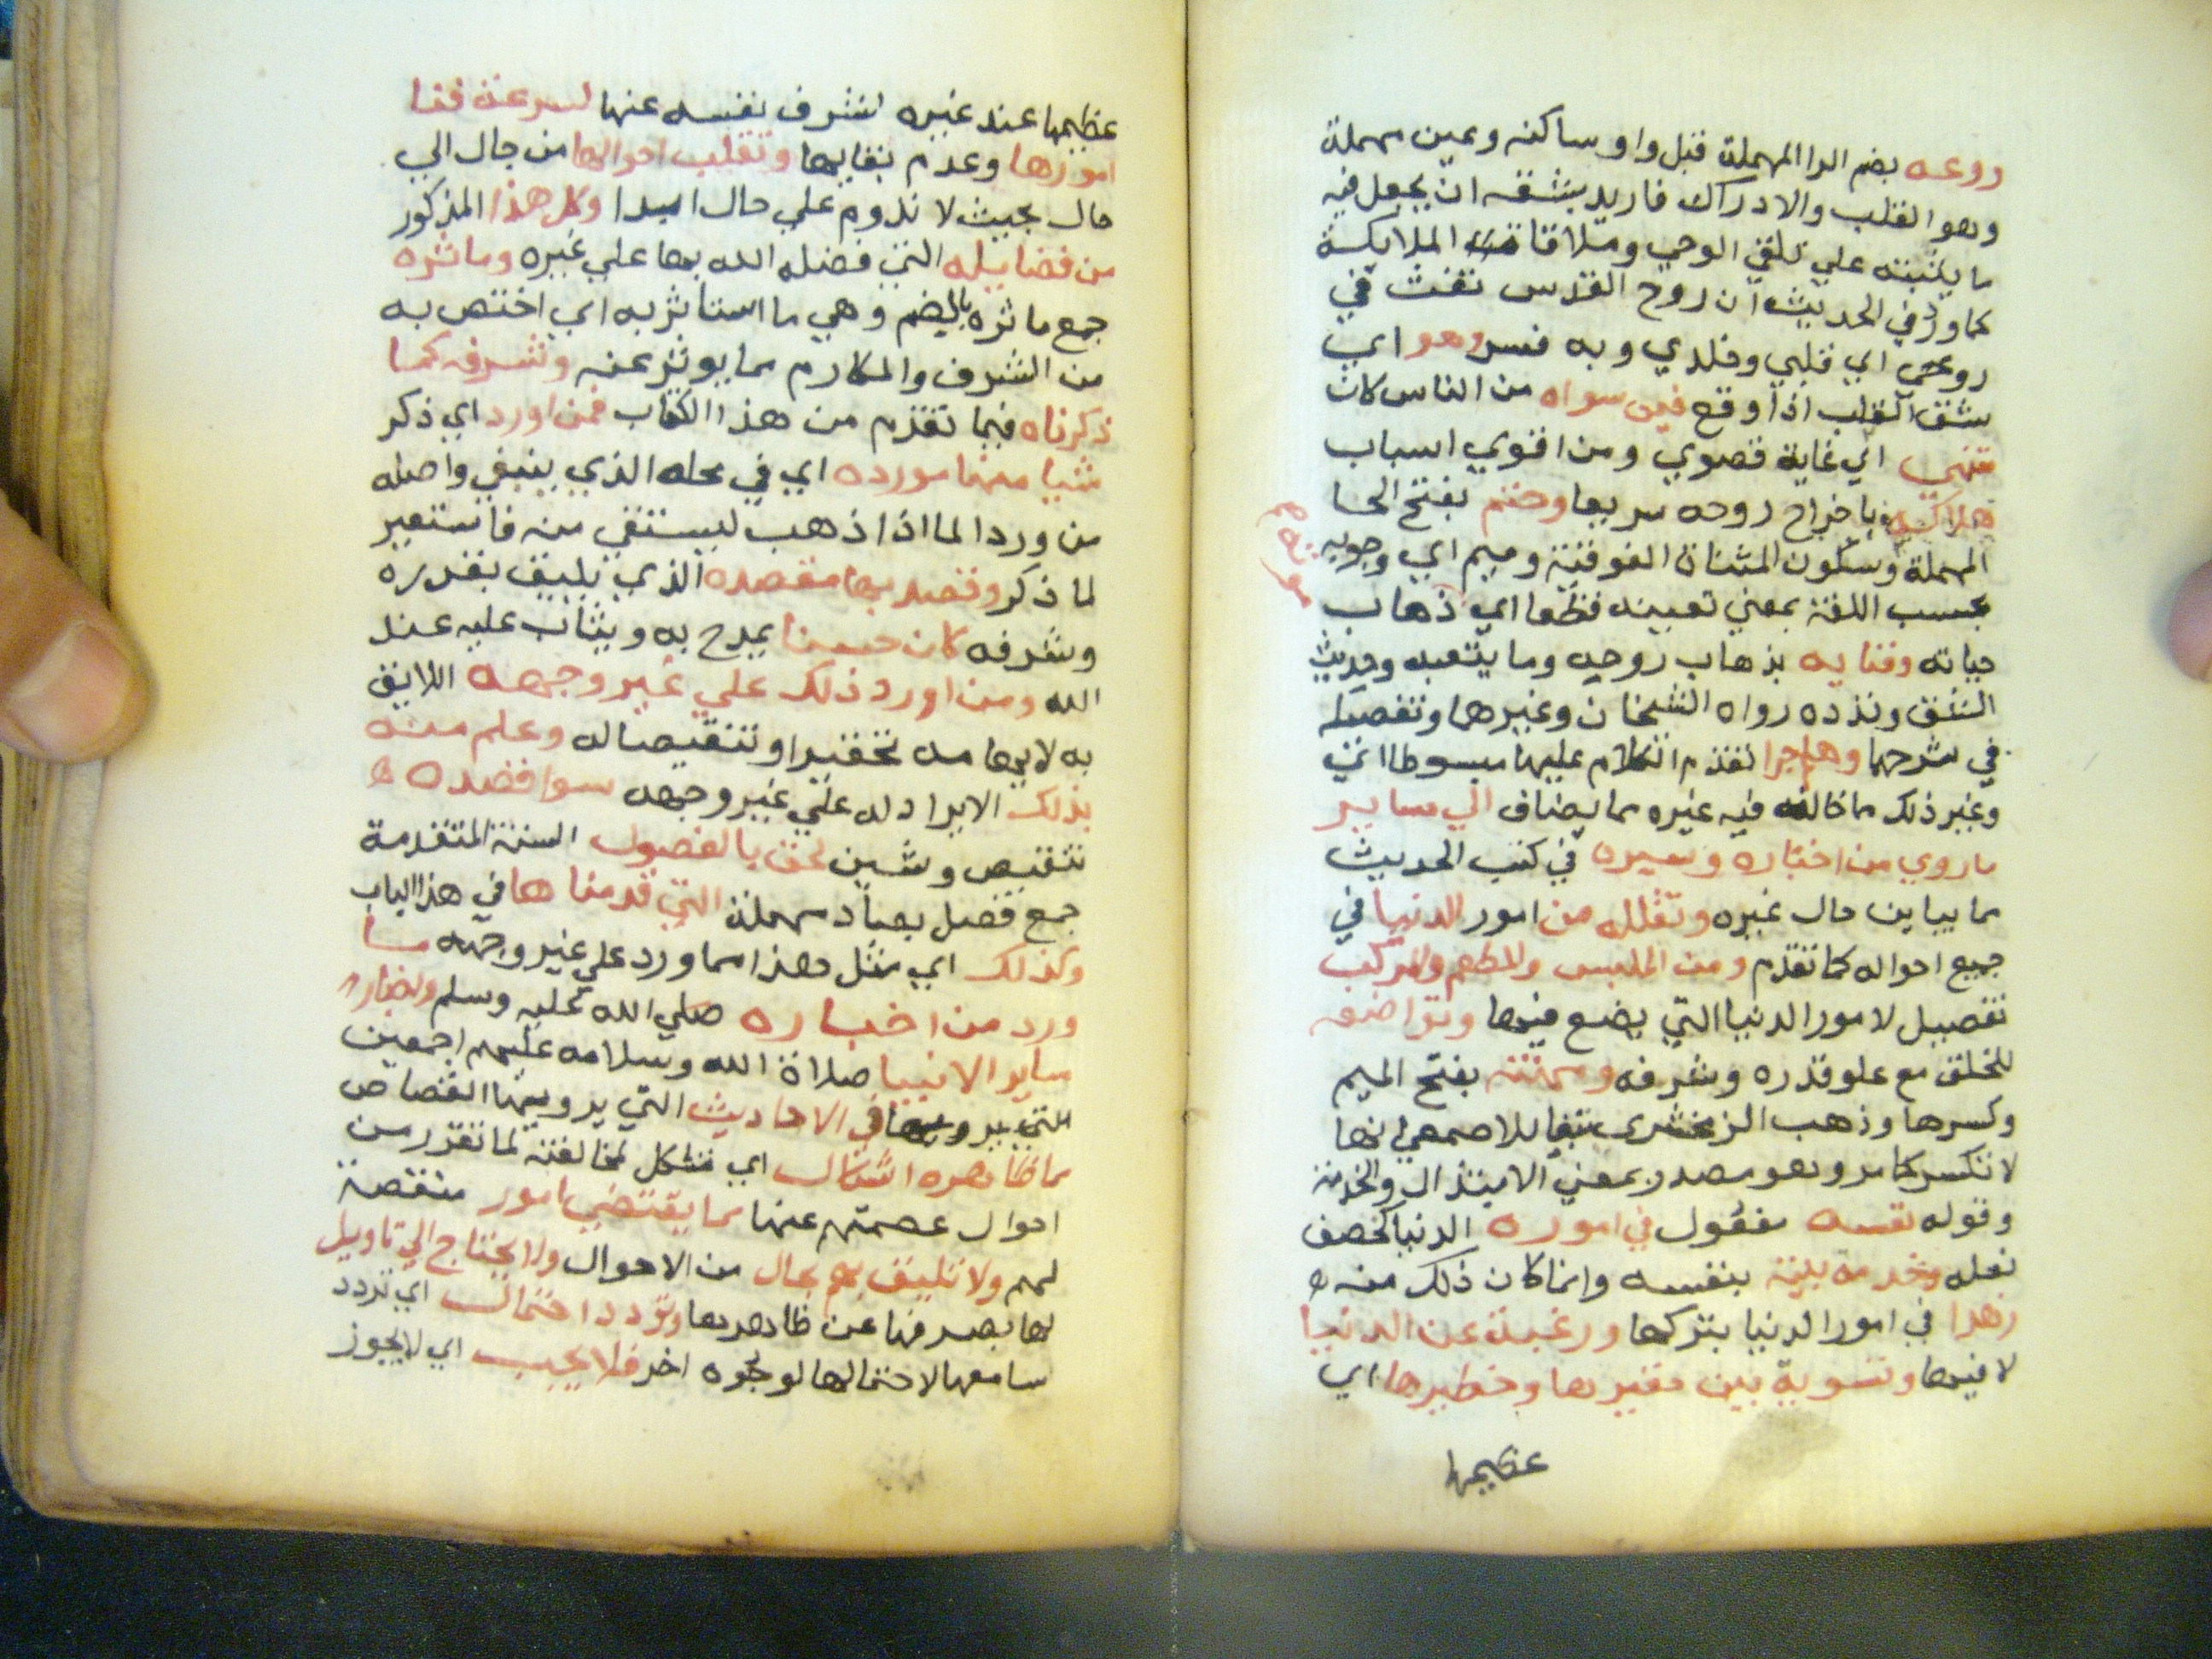 روعه بضم الرا المهملة قبل واو ساكنه وعين مهملة
وهو القلب والادراك فاريد بشقه ان يجعل فيه
ما يثبته علي تلقي الوحي وملاقاة الملايكة
كما ورد في الحديث ان روح القدس نفث في
روعي اي قلبي وخلدي وبه فسر وهو اي
شق القلب اذا وقع فيمن سواه من الناس كان
منهي اي غاية قصوي ومن اقوي اسباب
هلاكه باخراج روحه سريعا وحتم بفتح الحا
المهملة وسكون المثناة الفوقية وميم اي وجوبه
بحسب اللغة بمعني تعيينه قطعا اي ذهاب
موته
حياته وفنايه بذهاب روحه وما يتبعه وحديث
الشق ونذده رواه الشيخان وغيرهما وتفصيله
في شرحهما وهلم جرا تقدم الكلام عليها مبسوطا اي
وغير ذلك مما خالف فيه غيره مما يضاف الي ساير
ما روي من اخباره وسيره في كتب الحديث
مما يباين حال غيره وتقلله من امور الدنيا في
جميع احواله كما تقدم ومن الملبس والمطعم والمركب
تفصيل لامور الدنيا التي يضع فيها وتواضعه
للخلق مع علو قدره وشرفه ومهنته بفتح الميم
وكسرها وذهب الزمخشري تبعا للاصمعي انها
لا تكسر كما مر وهو مصدر بمعني الابتذال والخدمة
وقوله نفسه مفعول في اموره الدنيا كخصف
نعله وخدمة بيته بنفسه وانما كان ذلك منه
زهدا في امور الدنيا بتركها ورغبة عن الدنيا
لا فيها وتسوية بين حقيرها وخطيرها اي
عظيمها
عظيمها عند غيره لشرف نفسه عنها لسرعة فنا
امورها وعدم بقايها وتقلب احوالها من حال الي
حال بحيث لا تدوم علي حال ابدا وكل هذا المذكور
من فضايله التي فضله الله بها علي غيره وماثره
جمع ماثرة بالضم وهي ما استاثر به اي اختص به
من الشرف والمكارم مما يوثر عنه وشرفه كما
ذكرناه فيما تقدم من هذا الكتاب فمن اورد اي ذكر
شيا منها مورده اي في محله الذي ينبغي واصله
من ورد الما اذا ذهب ليستقي منه فاستعير
لما ذكر وقصد بها مقصده الذي يليق بقدره
وشرفه كان حسنا يمدح به ويثاب عليه عند
الله ومن اورد ذلك علي غير وجهه اللايق
به لايهامه تحقيرا وتنقيصا له وعلم منه
بذلك الايراد له علي غير وجهه سوا قصده
تنقيص وشين لحق بالفصول الستة المتقدمة
جمع فصل بصاد مهملة التي قدمناها في هذا الباب
وكذلك اي مثل هذا مما ورد علي غير وجهه ما
ورد من اخباره صلي الله عليه وسلم واخبار
ساير الانبيا صلاة الله وسلامه عليهم اجمعين
التي يرويها في الاحاديث التي يرويها القصاص
مما ظاهره اشكال اي مشكل لمخالفته لما تقرر من
احوال عصمتهم عنها مما يقتضي امور منقصة
لهم ولا تليق بهم بحال من الاحوال ولا يحتاج الي تاويل
لها بصرفها عن ظاهرها وتردد احتمال اي تردد
سامعها لاحتمالها لوجوه اخر فلا يجب اي لا يجوز